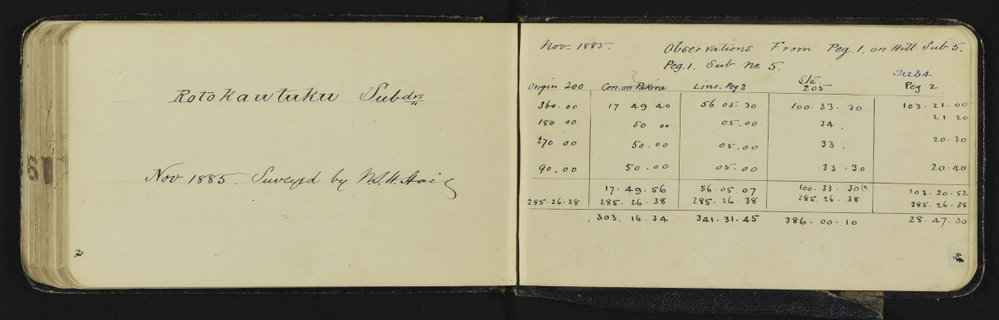 Rotokautuku Subdvs
Nov 1885. Surveyed by
61
2
Nov. 1885. Observations From Peg 1. on Hill Sub 5.
Peg. 1. Sub No 5.
Origin 200 Con. on Line. Peg 2 Sta. 205 Sub 4 Peg 2
360.00 17 49 40 56 05.30 100.33.30 103.21.00
180 00 50 00 05.00 34. 21 20
270 00 50.00 05.00 33. 20.30
90.00 50.00 05.00 33.30 20.40
17.49.56 56.05.07 100.33.30 103.20.52
285.26.38 285.26.38 285.26.38 285.26.38 285.26.38
303.16.34 341.31.45 386.00.10 28.47.30